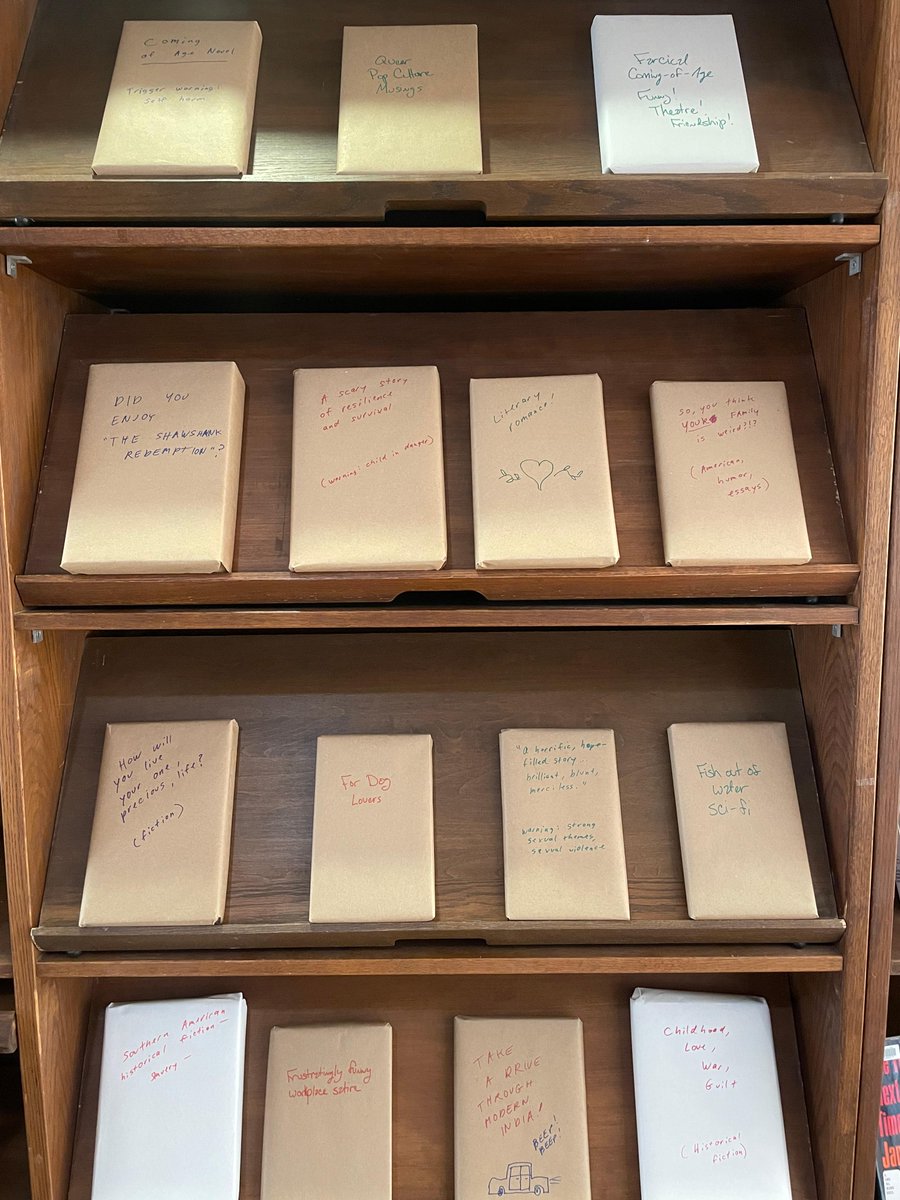 Coming
of Age Novel
Trigger warning!
self harm
Queer
Pop Culture
Musings
Farcical
Coming-of-Age
Funny!
Theatre!
Friendship!
DID YOU
ENJOY
"THE SHAWSHANK
REDEMPTION"?
A scary story
of resilience
and survival
(warning: child in danger)
Literary
romance!
So, you think
YOUR FAMILY
is weird?!?
(American,
humor,
essays)
How will
you live
your one,
precious, life?
(fiction)
For Dog
Lovers
"a horrific, hope-
filled story...
brilliant, blunt,
merciless."
warning: strong
sexual themes,
sexual violence
Fish out of
water
sci-fi
Southern American
historical fiction-
slavery-
Frustratingly funny
workplace satire
TAKE
A DRIVE
THROUGH
MODERN
INDIA!
BEEP!
BEEP!
Childhood,
Love,
War,
Guilt
(Historical
fiction)